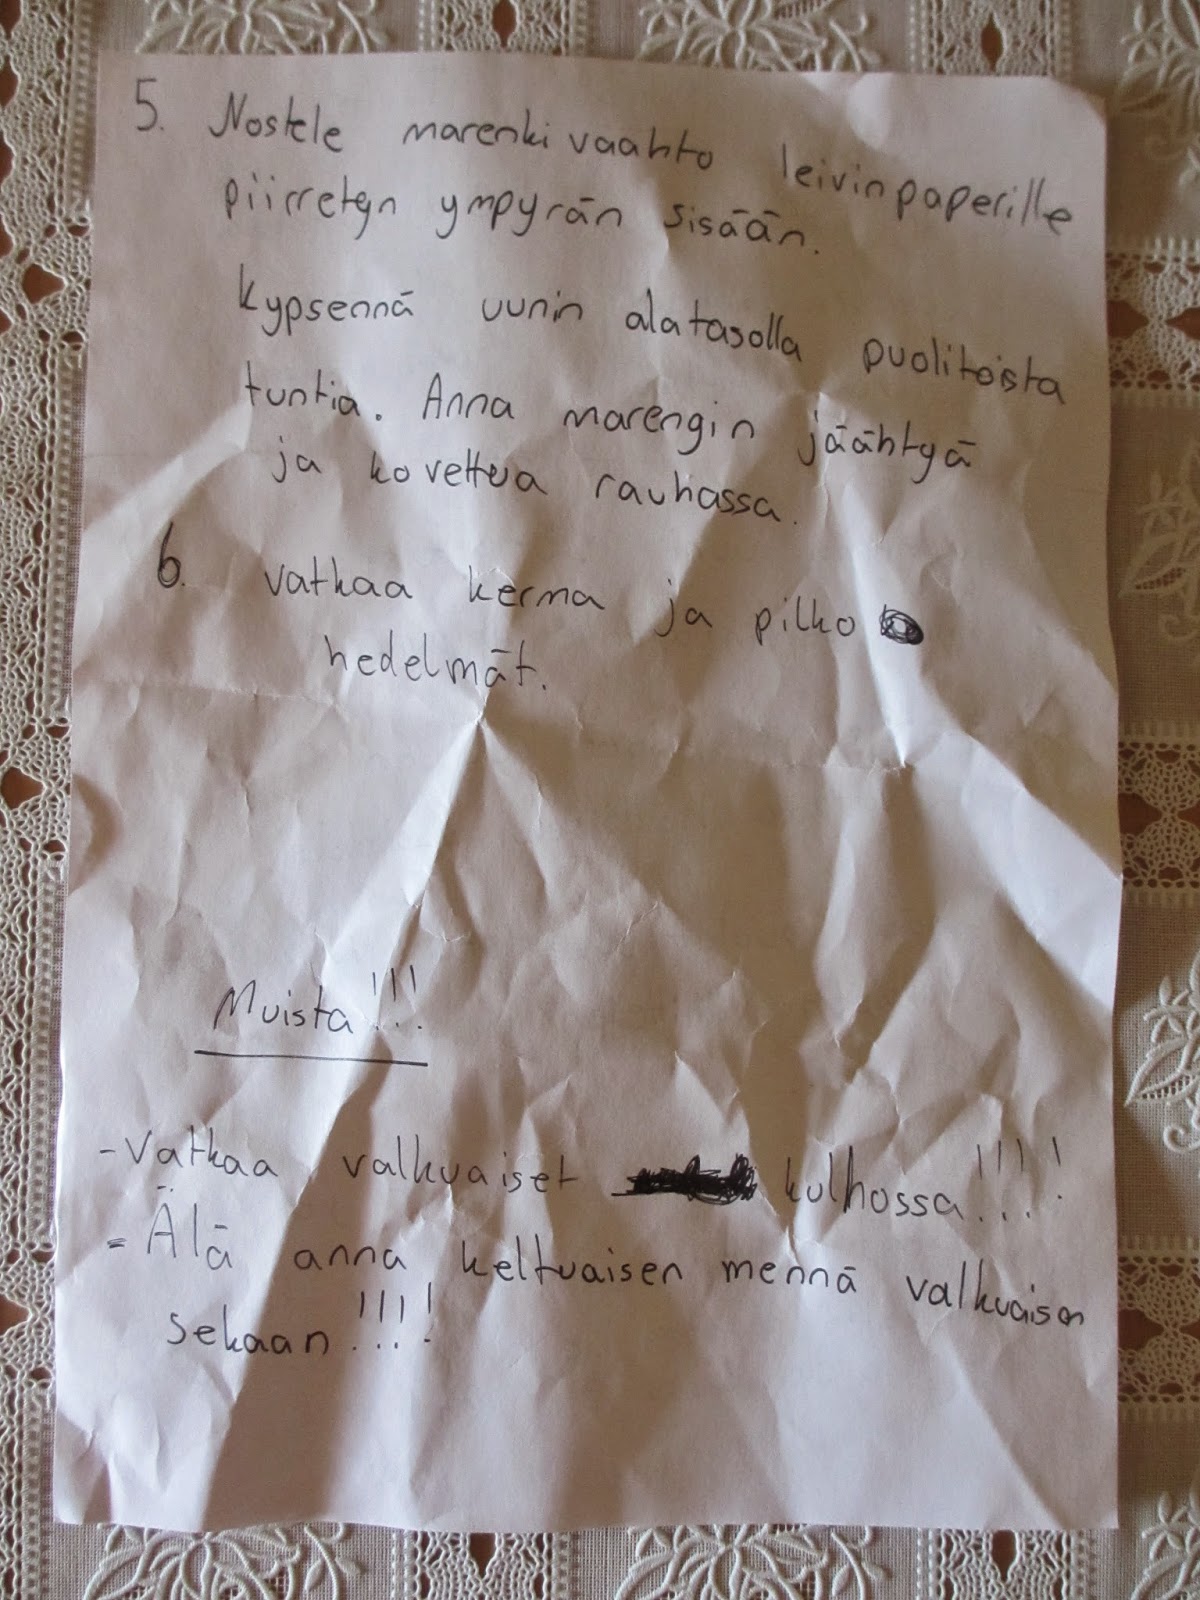 5. Nostele marenkivaahto leivinpaperille
piirretyn ympyrän sisään.
Kypsennä uunin alatasolla puolitoista
tuntia. Anna marengin jäähtyä
ja kovettua rauhassa.
6. Vatkaa kerma ja pilko
hedelmät.
Muista!!!
- Vatkaa valkuaiset kulhossa!!!!
- Älä anna keltuaisen mennä valkuaisen
sekaan!!!!